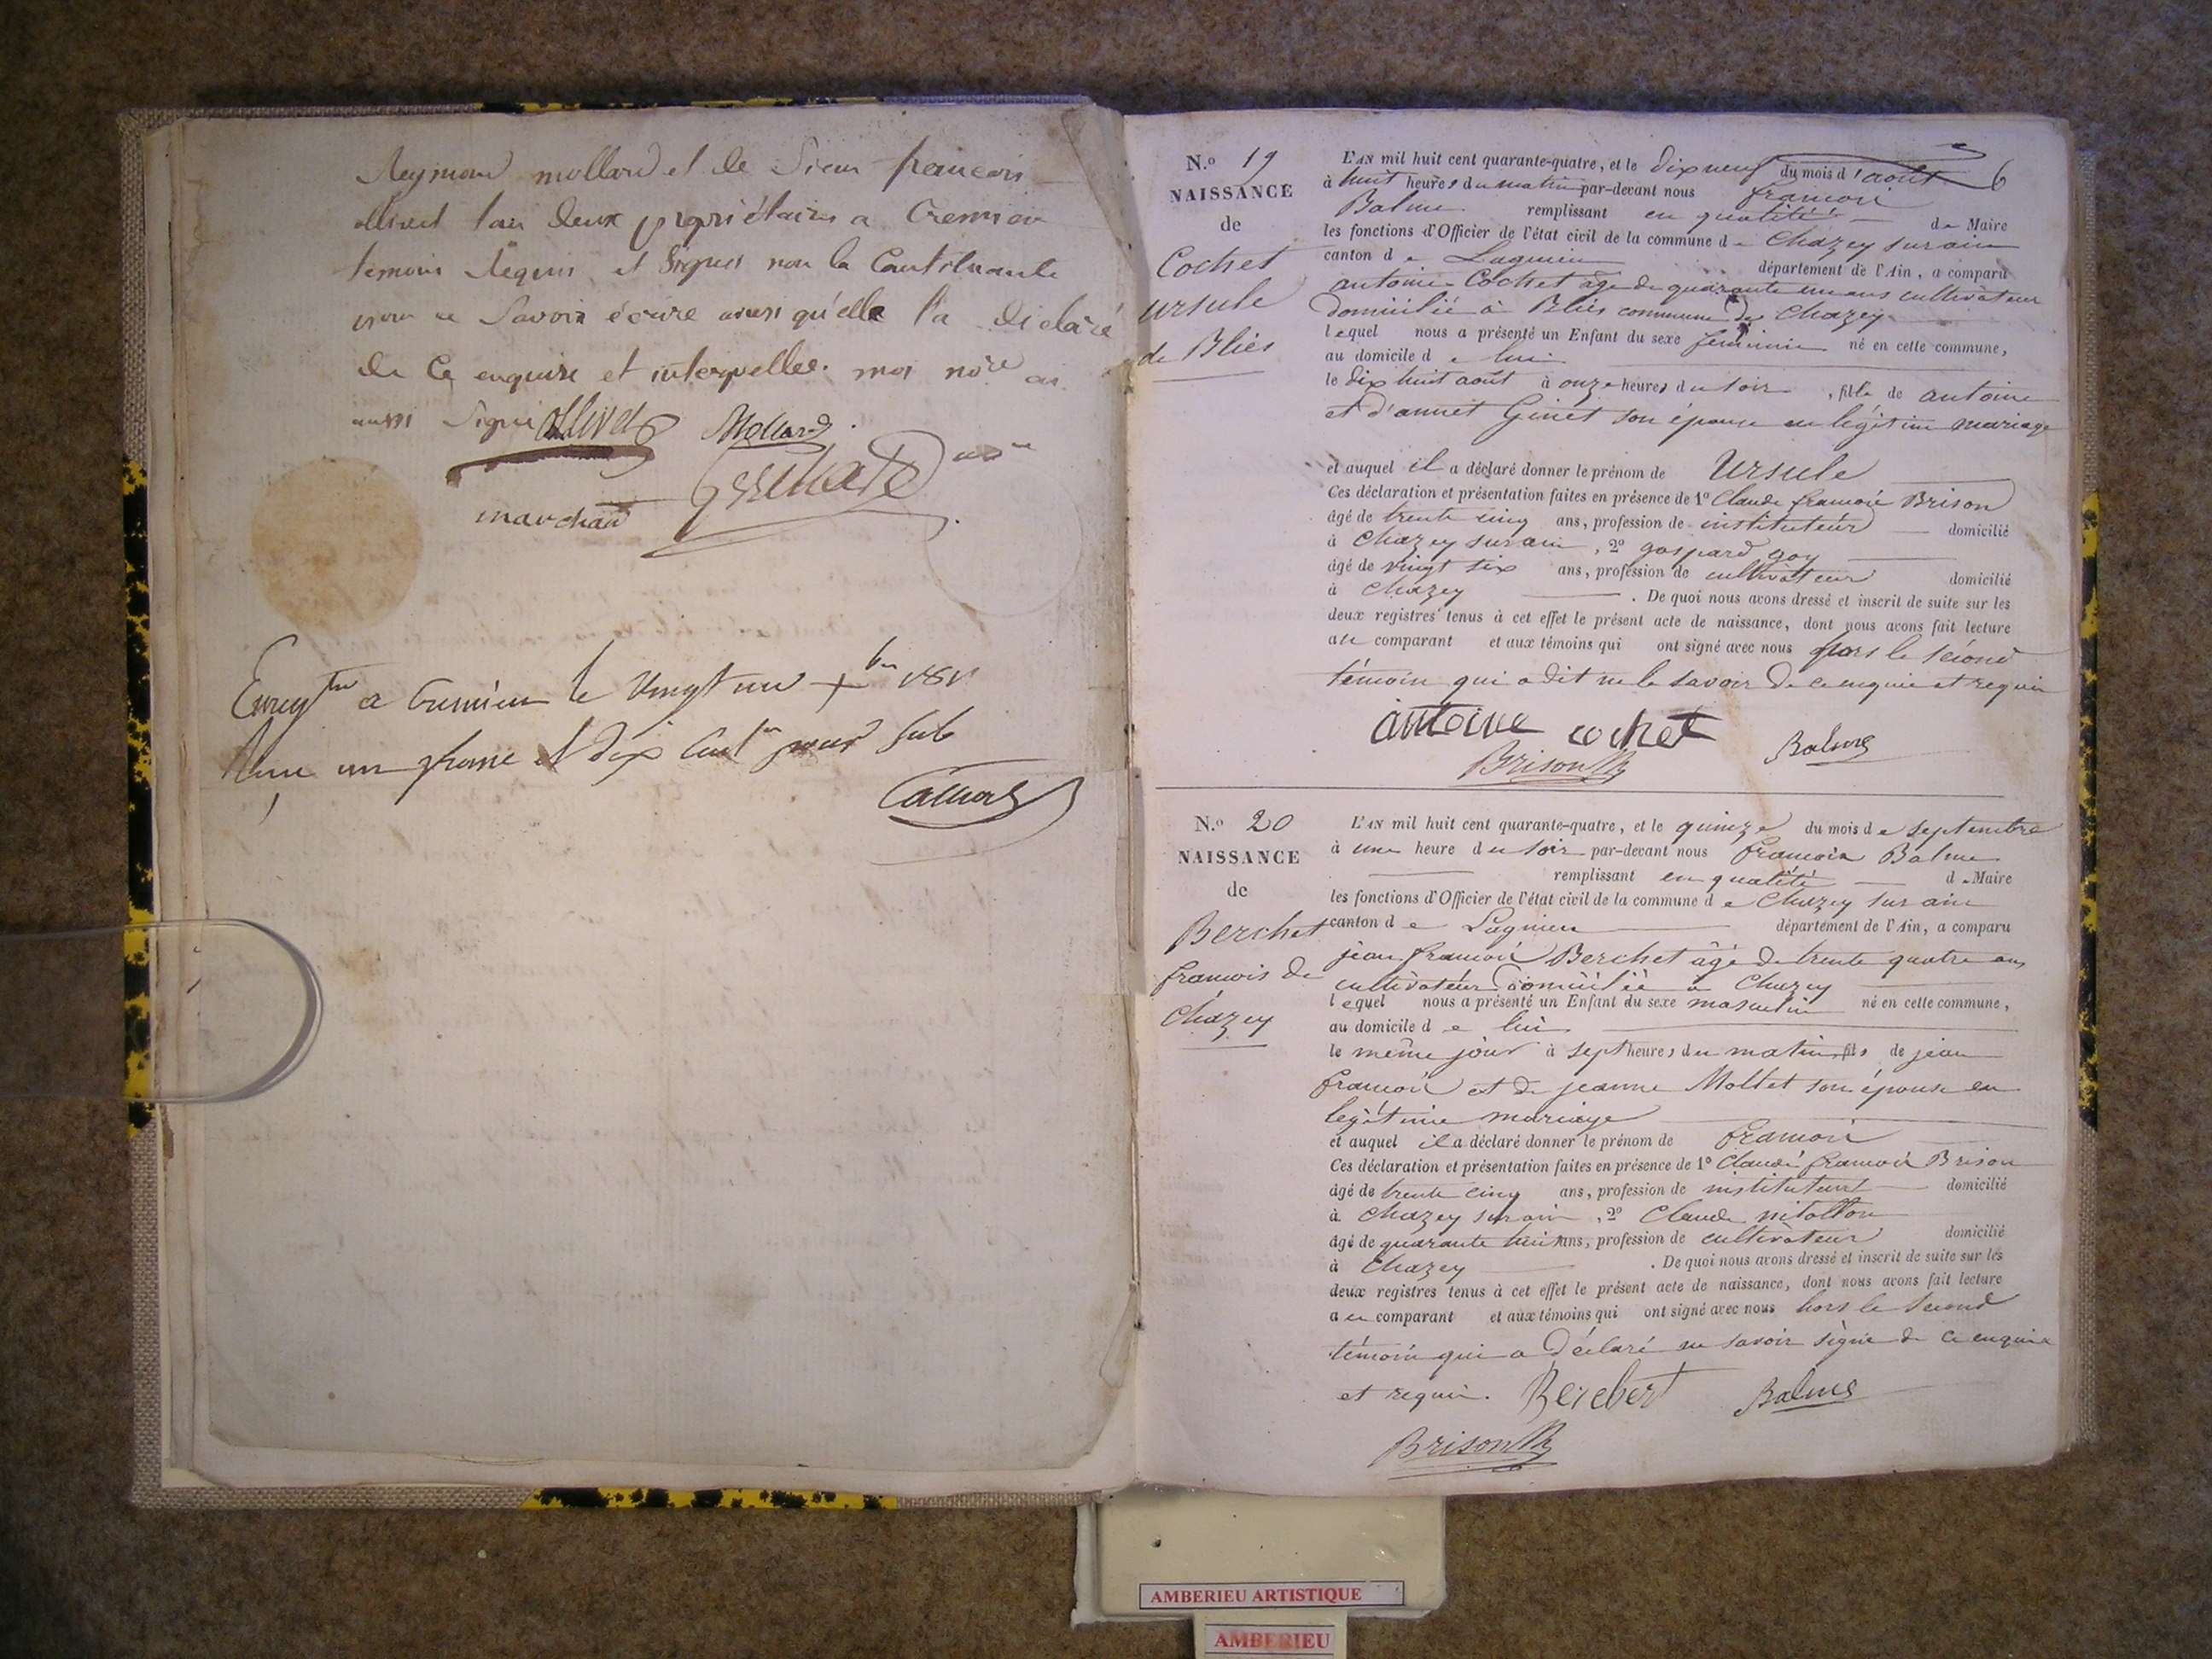 Reymond mollard et de Sieur francois
ollivet tous deux propriétaires a Cremieu
temoins Requis et Signés non la Constituante
pour ne Savoir écrire ainsi qu'elle l'a déclaré
de Ce enquise et interpellée. moi nore
aussi Signé Ollivet Mollard
marchand
Enregtré a Cremieu le Vingt un Xbre
un franc et dix Centes pour Sub
N.º 19
NAISSANCE
de
Cochet
Ursule
de Bliés
L'AN mil huit cent quarante-quatre, et le dix neuf du mois d'août 6
à huit heures du matin par-devant nous francois
Balme remplissant en qualité de Maire
les fonctions d'Officier de l'état civil de la commune de Chazey sur ain
canton de Lagnieu département de l'Ain, a comparu
antoine Cochet âgé de quarante un ans cultivateur
domicilié à Bliés commune de Chazey
lequel nous a présenté un Enfant du sexe féminin né en cette commune,
au domicile de lui
le dix huit août à onze heures du soir, fille de antoine
et d'annet Ginet son épouse en légitime mariage
et auquel il a déclaré donner le prénom de Ursule
Ces déclaration et présentation faites en présence de 1º Claude francois Brison
âgé de trente cinq ans, profession de instituteur domicilié
à Chazey sur ain, 2º gaspard goy
âgé de vingt six ans, profession de cultivateur domicilié
à Chazey. De quoi nous avons dressé et inscrit de suite sur les
deux registres tenus à cet effet le présent acte de naissance, dont nous avons fait lecture
au comparant et aux témoins qui ont signé avec nous hors le second
témoin qui a dit ne le savoir de ce enquis et requis
antoine cochet Balme
Brison
N.º 20
NAISSANCE
de
Berchet
francois de
Chazey
L'AN mil huit cent quarante-quatre, et le quinze du mois de septembre
à une heure du soir par-devant nous francois Balme
remplissant en qualité de Maire
les fonctions d'Officier de l'état civil de la commune de Chazey sur ain
canton de Lagnieu département de l'Ain, a comparu
jean francois Berchet âgé de trente quatre ans
cultivateur domicilié à Chazey
lequel nous a présenté un Enfant du sexe masculin né en cette commune,
au domicile de lui
le même jour à sept heures du matin, fils de jean
francois et de jeanne Mollet son épouse en
legitime mariage
et auquel il a déclaré donner le prénom de francois
Ces déclaration et présentation faites en présence de 1º Claude francois Brison
âgé de trente cinq ans, profession de instituteur domicilié
à Chazey sur ain, 2º Claude
âgé de quarante huit ans, profession de cultivateur domicilié
à Chazey. De quoi nous avons dressé et inscrit de suite sur les
deux registres tenus à cet effet le présent acte de naissance, dont nous avons fait lecture
au comparant et aux témoins qui ont signé avec nous hors le second
témoin qui a déclaré ne savoir signé de ce enquis
et requis. Berchet Balme
Brison
AMBERIEU ARTISTIQUE
AMBERIEU